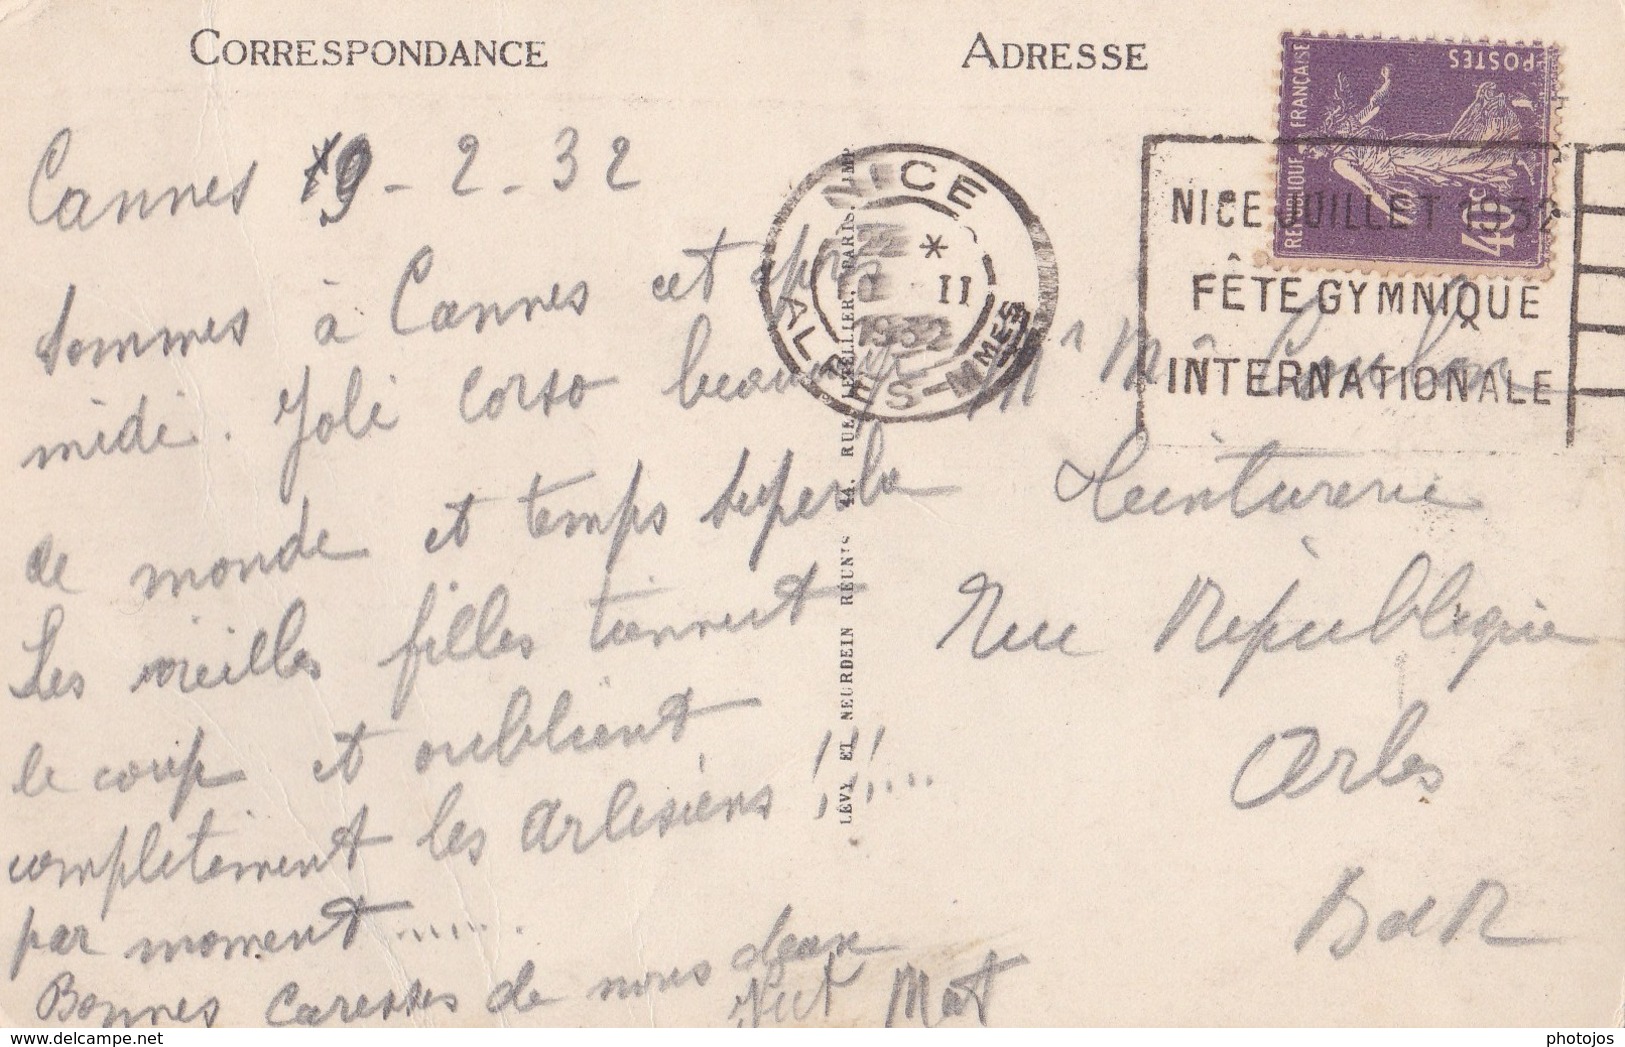 CORRESPONDANCE
ADRESSE
Cannes 19 - 2 - 32
Sommes à Cannes cet après
midi. Joli corso beaucoup
de monde et temps superbe
Les vieilles filles tiennent
le coup et oublient
complètement les Arlésiens !!!....
par moment .......
Bonnes Caresses de nous deux
Mat
LÉVY ET NEURDEIN RÉUNIS 44, RUE LETELLIER, PARIS. IMP
NICE
* II
1932
ALPES-MMES
RÉPUBLIQUE FRANÇAISE
POSTES
40c
NICE JUILLET 1932
FÊTE GYMNIQUE
INTERNATIONALE
Mr Me
Teinturerie
Rue République
Arles
B d R
delcampe.net
photojos